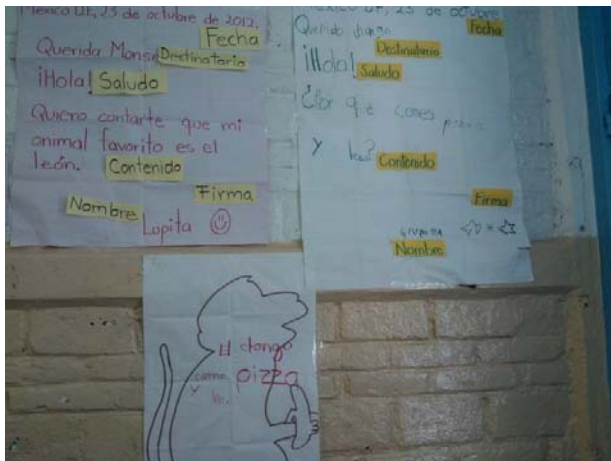 México D.F., 23 de octubre de 2012.
Fecha
Querida Monse Destinatario
¡Hola! Saludo
Quiero contarte que mi
animal favorito es el
león. Contenido
Firma
Nombre
Lopita
México D.F., 23 de octubre
Fecha
Querido chango
Destinatario
¡Hola! Saludo
¿Por qué comes
y lees? Contenido
Firma
Nombre
El chango
come pizza
y